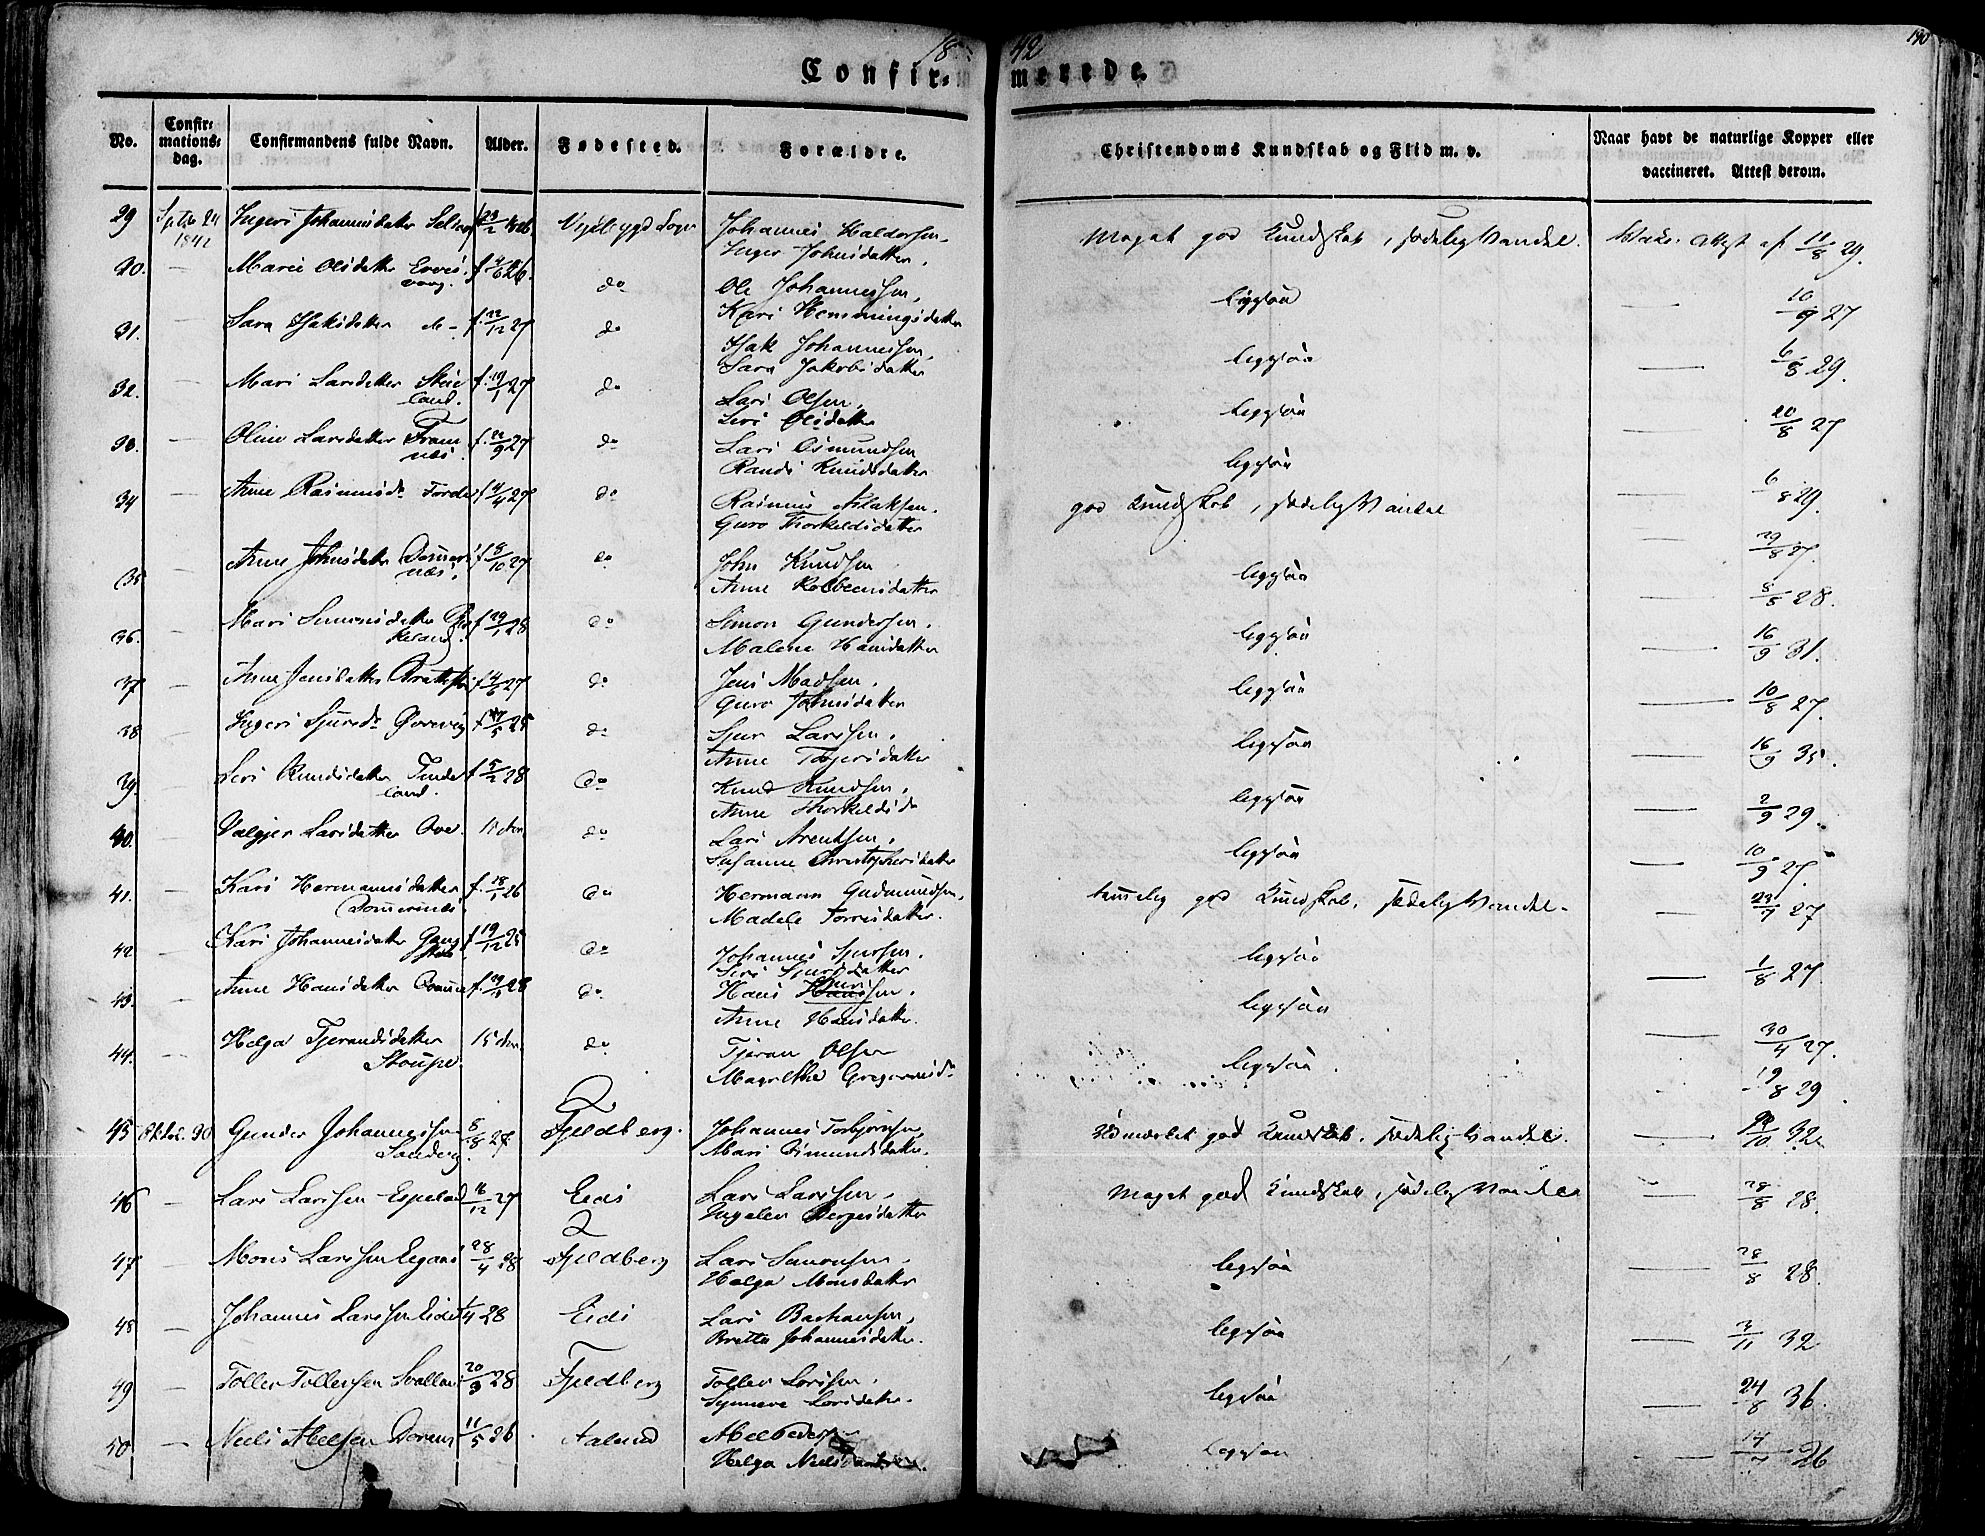 18 42
190
Confir- merede.
No. Confir- mations- dag. Confirmandens fulde Navn. Alder. Fødested. Forældre. Christendoms Kundskab og Flid m. v. Naar havt de naturlige Kopper eller vaccineret. Attest derom.
29 Septbr 24 1842 Ingeri Johannisdatter 23/2 1826 Johannes Haldorsen, Inger Johnsdatter. Meget god Kundskab, sædelig Vandel. Vakc. Attest af 11/8 29.
30. — Mari Olsdatter f. 4/6 26. do Ole Johannessen, Kari Hemmingsdatter ligesaa — 10/9 27
31. — Sara Isaksdatter do f. 22/12 27 do Isak Johannessen, Sara Jakobsdatter ligesaa — 6/8 29.
32. — Mari Larsdatter Steinland. f. 19/1 27 do Lars Olsen, Siri Olsdatter ligesaa — 20/8 27
33. — Oline Larsdatter Framnæs. f. 22/9 27 do Lars Osmundsen Randi Knudsdatter ligesaa — 6/8 29.
34 — Anne Rasmusdr Forde f. 4/4 27 do Rasmus Aslaksen. Guro Thorkeldsdatter god Kundskab, sædelig Vandel — 29/8 27.
35 Anne Johnsdatter Dommersnæs. f. 8/10 27 do John Knudsen Anne Kolbeensdatter ligesaa — 8/5 28.
36. — Mari Simonsdatter f. 29/1 28 do Simon Gundersen. Malene Hansdatter ligesaa — 16/9 31.
37 — Anne Jensdatter f. 4/6 27 do Jens Madsen. Guro Johnsdatter ligesaa — 10/8 27.
38 — Ingeri Sjursdr do Sjur Larssen. Anne ligesaa — 16/9 35.
39. — Siri Knudsdatter Tindeland. f. 5/2 28 do Knud Knudsen. Anne Thorkeldsd ligesaa — 2/9 29.
40. — Valgjer Larsdatter 15 Aar do Lars Arentsen. Susanne Christophersdatter ligesaa — 10/9 27.
41. — Kari Hermannsdatter Dommersnæs. f. 18/1 26 do Hermann Gudmundsen, Madele Torresdatter. temmelig god Kundskab, sædelig Vandel. — 27
42 — Kari Johannesdatter f. 19/12 25 do Johannes Sjursen. Siri Sjursdatter ligesaa — 1/8 27.
43. — Anne Hansdatter 28 do Hans Anne Hansdatter. ligesaa — 30/4 27.
44. — Helga Tjerandsdatter Stoupe. 15 Aar do Tjeran Olsen Magrethe Gregoriusdr ligesaa. 19/8 29
45 Oktbr. 30 Gunder Johannessen Sandvig. 8/8 27 Fjeldberg. Johannes Torbjørnsen, Mari Simundsdatter. Udmærket god Kundskab, sædelig Vandel. — 32
46 — Lars Larssen Espeland 16/12 27 Eids Lars Larssen. Ingelev Børgesdatter Meget god Kundskab, sædelig Vandel — 28/8 28.
47 — Mons Larssen 28/4 28 Fjeldberg Lars Simonsen. Helga Monsdatter ligesaa — 28/8 28.
48 — Johannes Larssen Eide 1/4 28 Eids Lars Barhausen, Britta Johannesdatter. ligesaa — 3/11 32
49 — Toller Tollersen 20/3 28 Fjeldberg Toller Larssen. Synneve Larsdatter. ligesaa — 24/8 36.
50 — Niels Abelsen 11/5 26. Aalund Abel Helga ligesaa 26